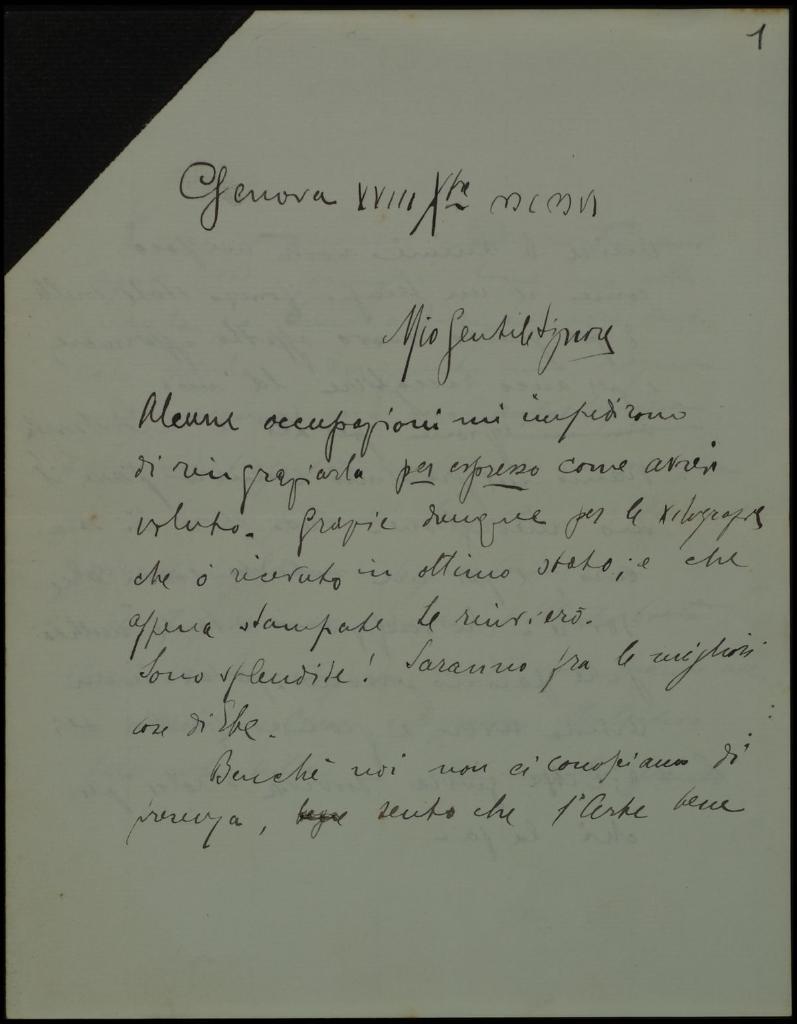 1
Genova XVIII Xbre
Mio Gentile Signore
Alcune occupazioni mi impedirono
di ringraziarla per espresso come avrei
voluto. Grazie dunque per le xilografie
che ò ricevuto in ottimo stato; e che
appena stampate Le rinvierò.
Sono splendide! Saranno fra le migliori
cose di Ebe.
Benchè noi non ci conosciamo di
presenza, sento che l'Arte bene